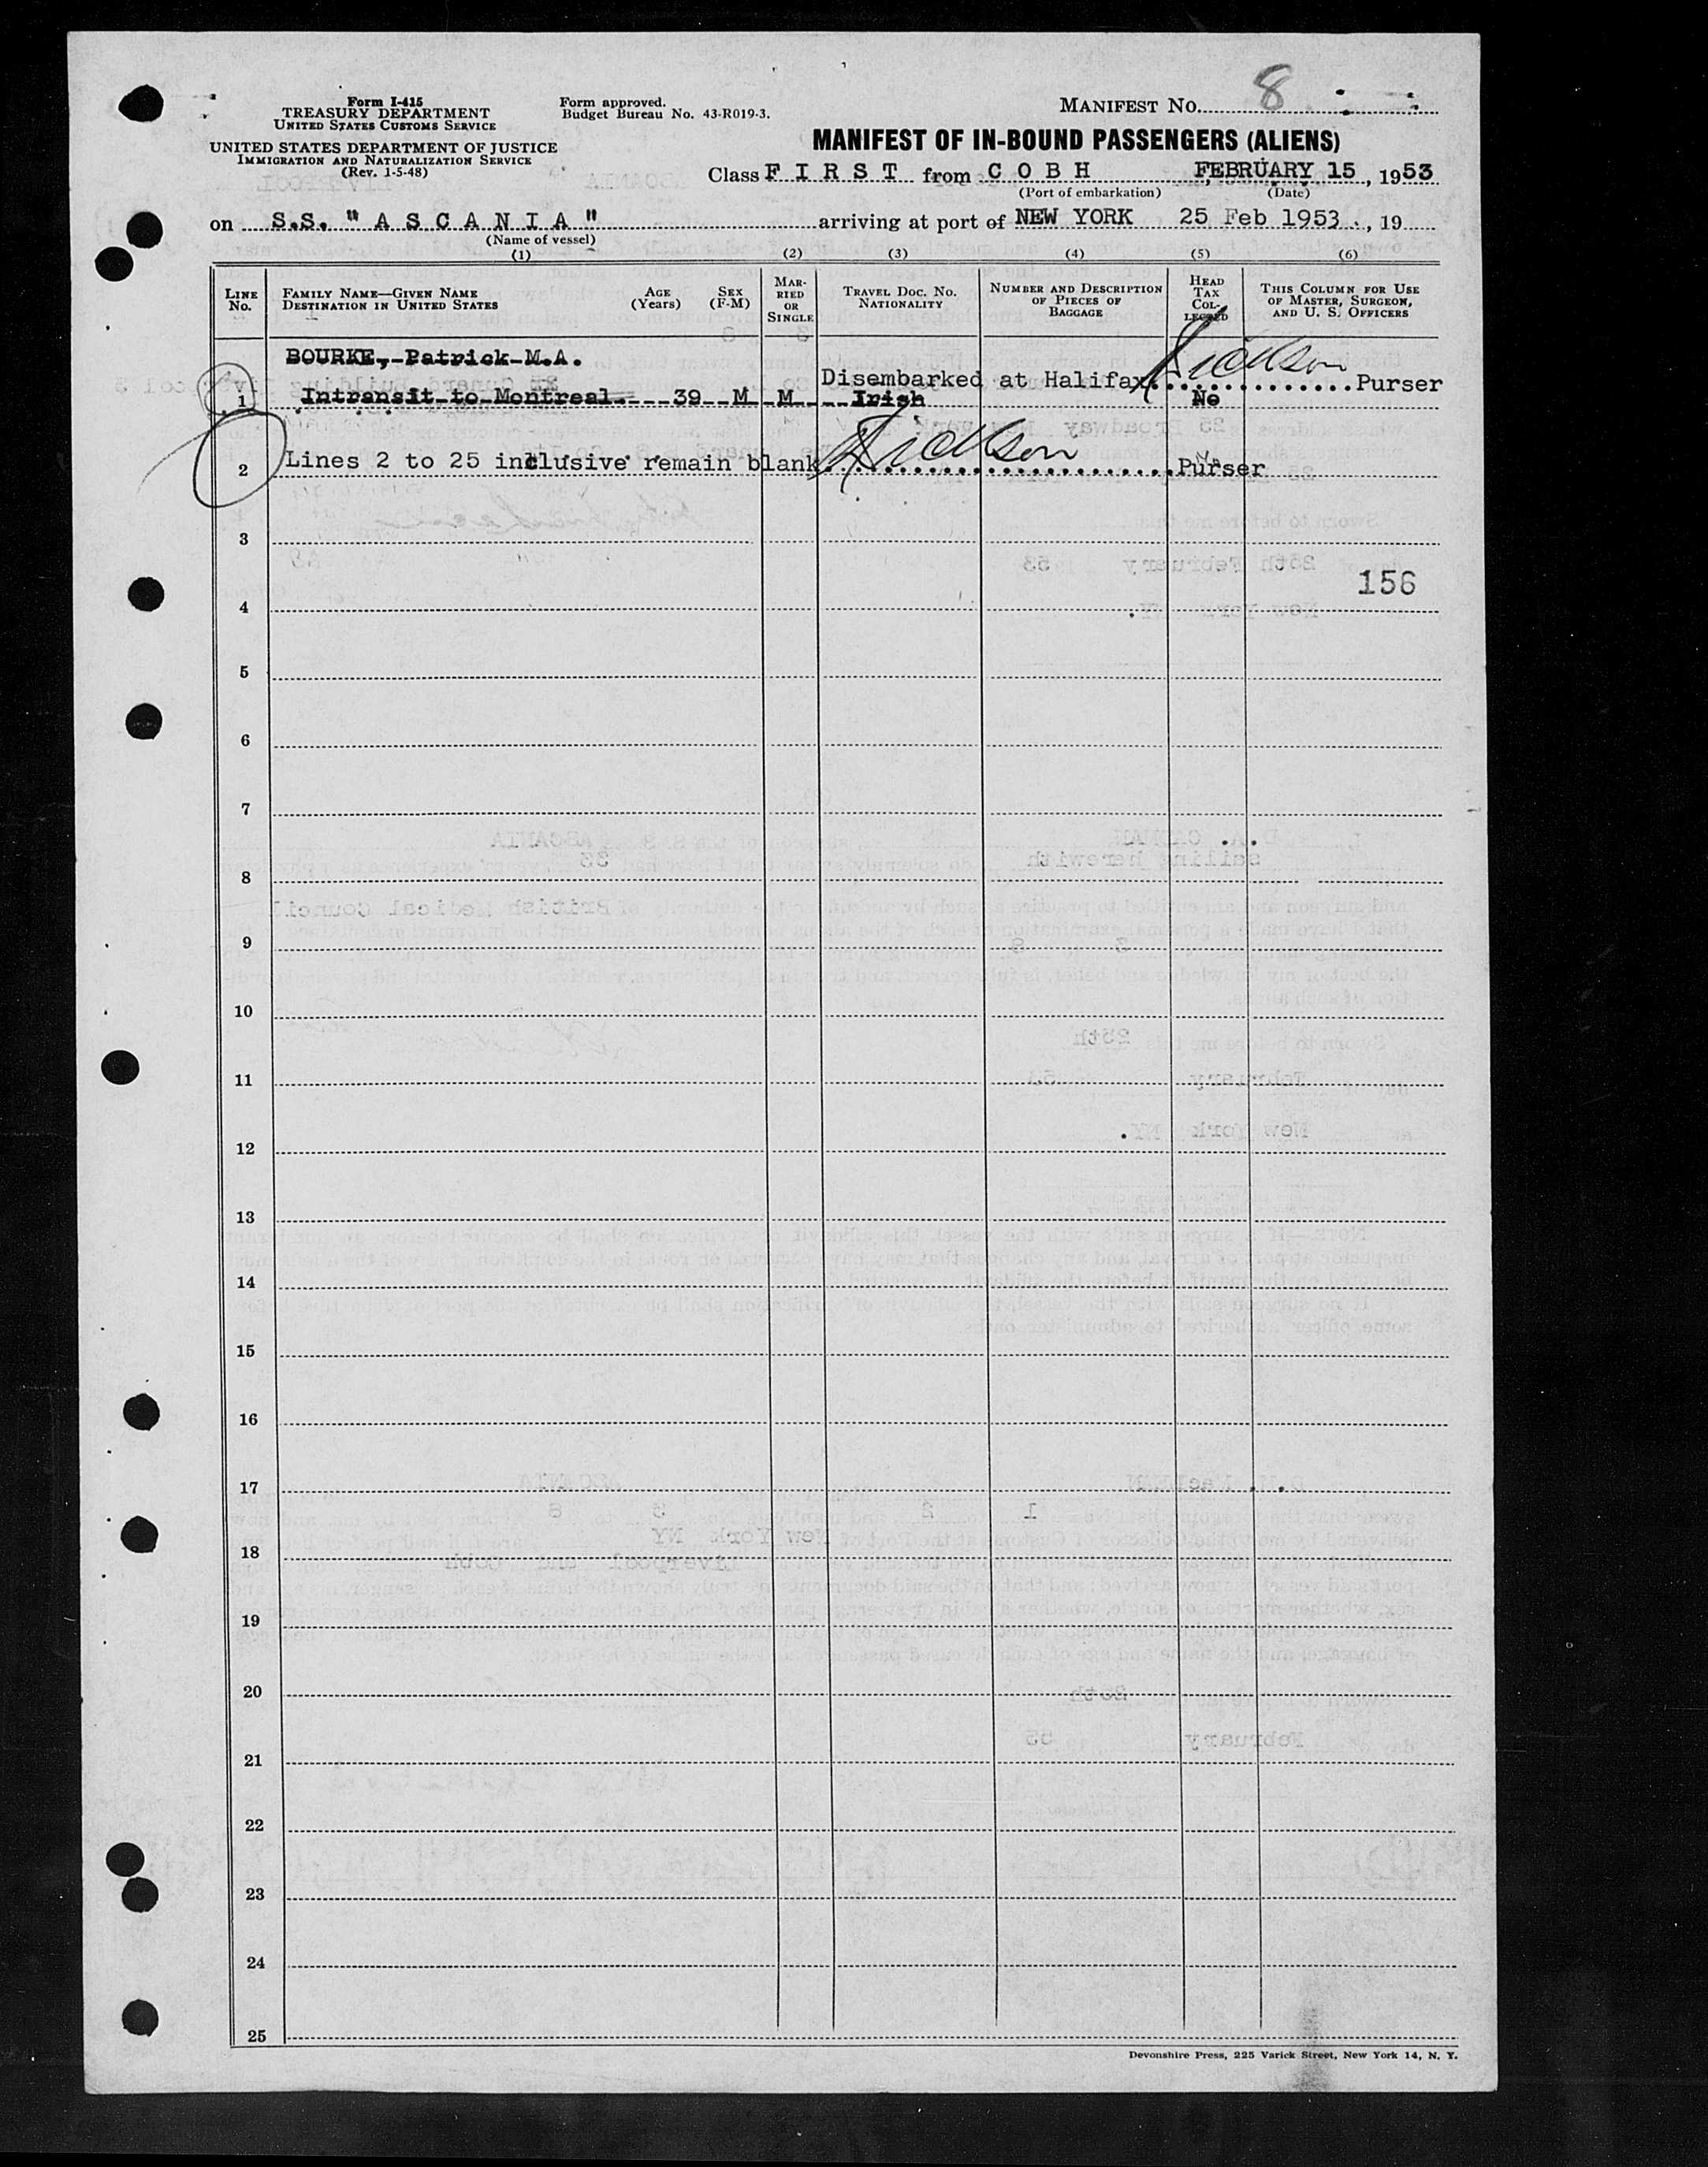 Form I-415
TREASURY DEPARTMENT
UNITED STATES CUSTOMS SERVICE
UNITED STATES DEPARTMENT OF JUSTICE
IMMIGRATION AND NATURALIZATION SERVICE
(Rev. 1-5-48)
Form approved.
Budget Bureau No. 43-R019-3.
MANIFEST NO. 8
MANIFEST OF IN-BOUND PASSENGERS (ALIENS)
Class F I R S T from C O B H FEBRUARY 15, 1953
(Port of embarkation) (Date)
on S.S. " A S C A N I A " arriving at port of NEW YORK 25 Feb 1953., 19
(Name of vessel)
(1) (2) (3) (4) (5) (6)
LINE NO. FAMILY NAME—GIVEN NAME DESTINATION IN UNITED STATES AGE (Years) SEX (F-M) MARRIED OR SINGLE TRAVEL DOC. NO. NATIONALITY NUMBER AND DESCRIPTION OF PIECES OF BAGGAGE HEAD TAX COLLECTED THIS COLUMN FOR USE OF MASTER, SURGEON, AND U. S. OFFICERS
BOURKE, Patrick M.A.
Disembarked at Halifax. Purser
1 Intransit to Montreal. 39 M M Irish No
2 Lines 2 to 25 inclusive remain blank. Purser
3
156
4
5
6
7
8
9
10
11
12
13
14
15
16
17
18
19
20
21
22
23
24
25
Devonshire Press, 225 Varick Street, New York 14, N. Y.